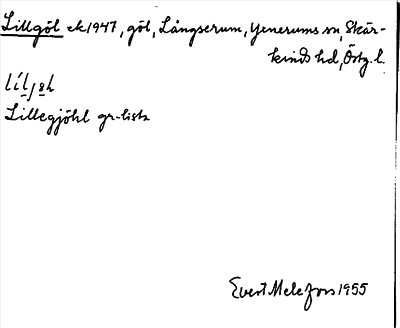 Lillgöl ek 1947, göl, Långserum, Yxnerums sn, Skär-
kinds hd, Östg. l.
Lillegjöhl gr-lista
Evert Melefors 1955